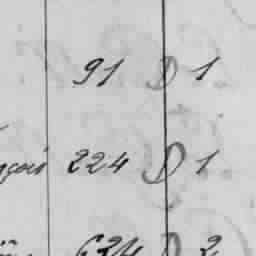 91 D 1
çois 224 D 1
634 D 2